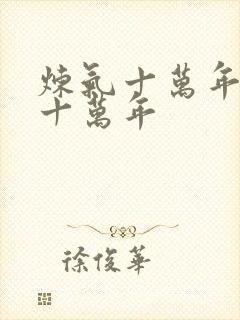 煉氣十萬年
十萬年
徐俊華